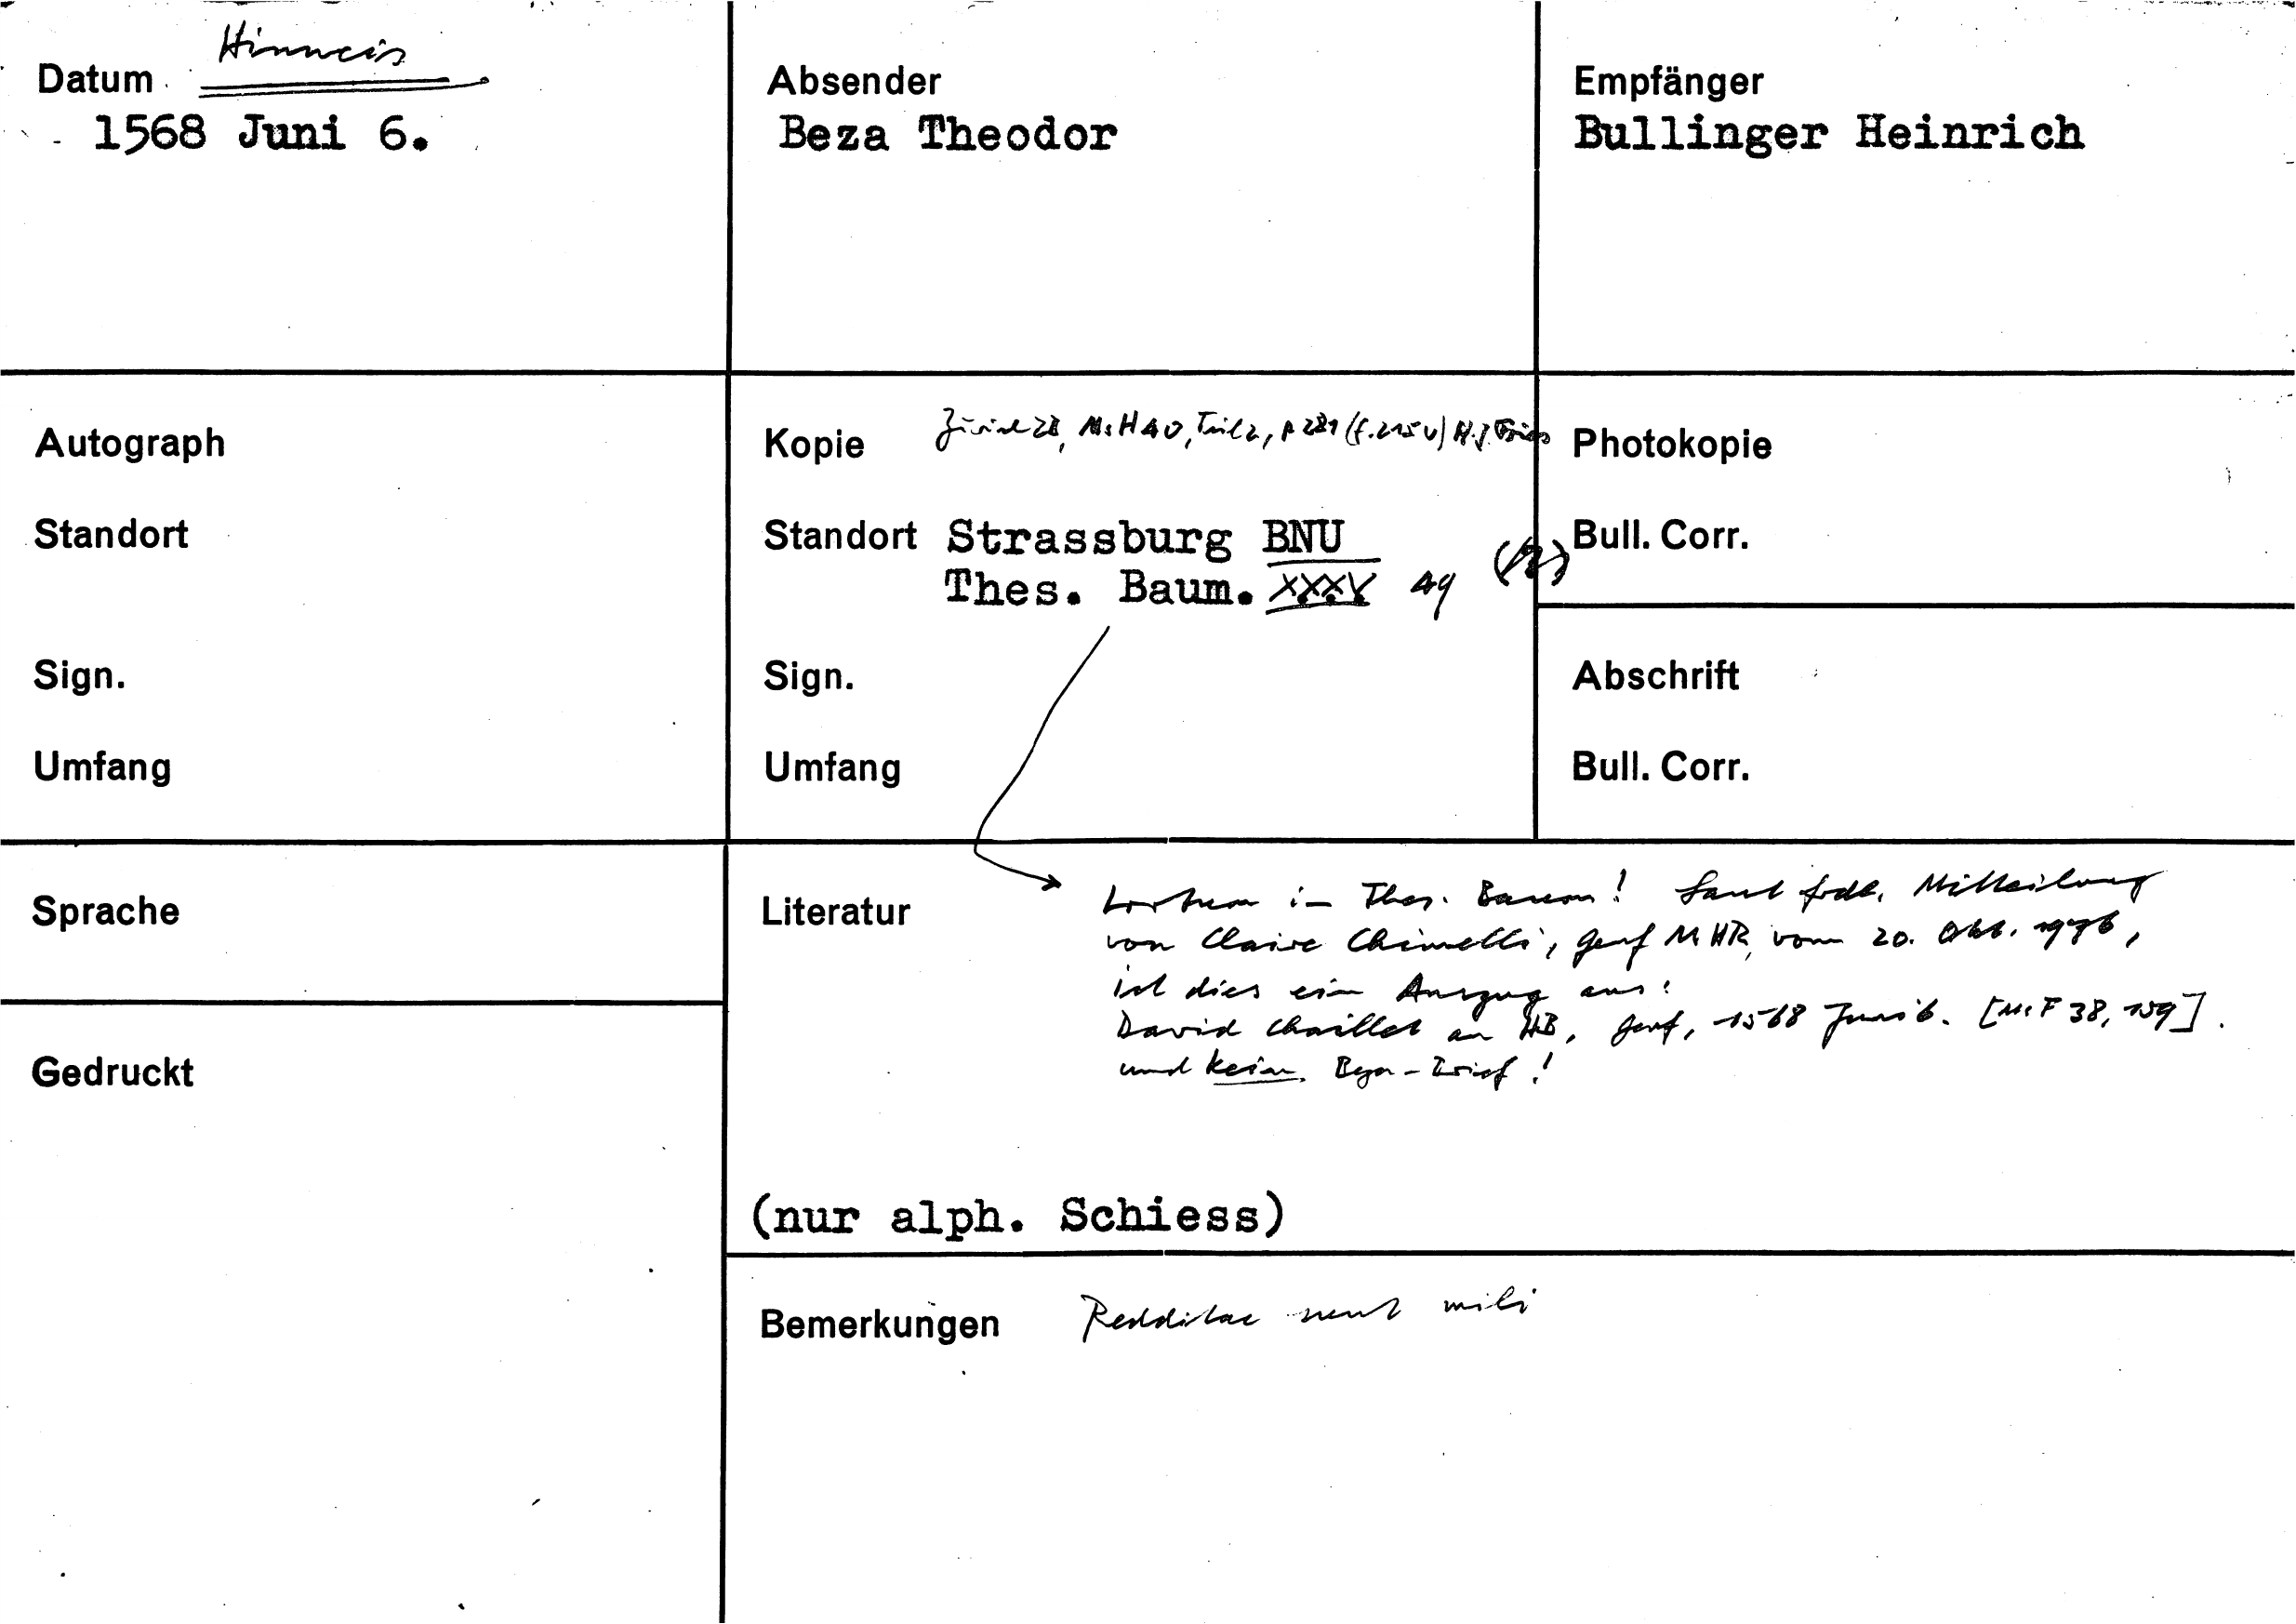 Hinweis
Datum
1568 Juni 6.
Absender
Beza Theodor
Empfänger
Bullinger Heinrich
Autograph
Standort
Sign.
Umfang
Kopie Zürich ZB, Ms H 40, Teil 2, p 281 (f. 215 v) H. J. Fries
Standort Strassburg BNU
Thes. Baum. XXXV 49
Sign.
Umfang
Photokopie
Bull. Corr.
Abschrift
Bull. Corr.
Sprache
Gedruckt
Literatur
in Thes. Baum! Laut frdl. Mitteilung
von Claire Chimelli, Genf MHR, vom 20. Okt. 1976,
ist dies ein Auszug aus:
David Chaillet an HB, Genf, 1568 Juni 6. [Ms F 38, 159].
und kein Beza-Brief!
(nur alph. Schiess)
Bemerkungen Redditae sunt mihi